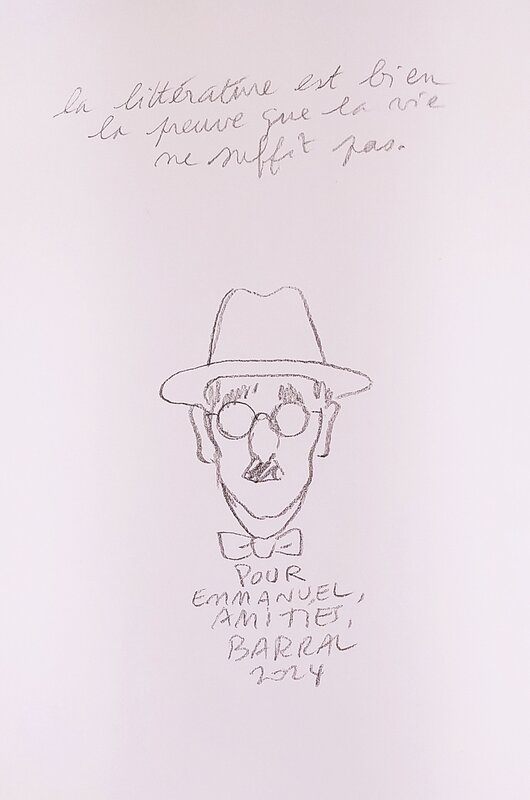 la littérature est bien
la preuve que la vie
ne suffit pas.
POUR
EMMANUEL,
AMITIÉS,
BARRAL
2024